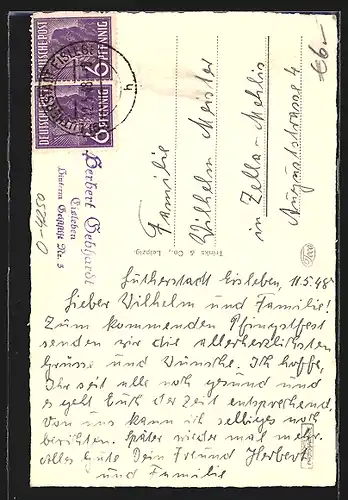 DEUTSCHE POST
6 PFENNIG
DEUTSCHE POST
6 PFENNIG
€6.-
Familie
Wilhelm Meister
in Zella-Mehlis
Auguststrasse 4
Herbert Gebhardt
Eisleben
Hinterm Nr. 3
Trinks & Co., Leipzig
Lutherstadt Eisleben, 11.5.48
Lieber Wilhelm und Familie!
Zum kommenden Pfingstfest
senden wir die allerherzlichsten
Grüsse und Wünsche. Ich hoffe,
Ihr seit alle noch gesund und
es geht Euch der Zeit entsprechend,
Von uns kann ich selbiges noch
berichten. Später wieder mal mehr.
Alles Gute Dein Freund Herbert
und Familie